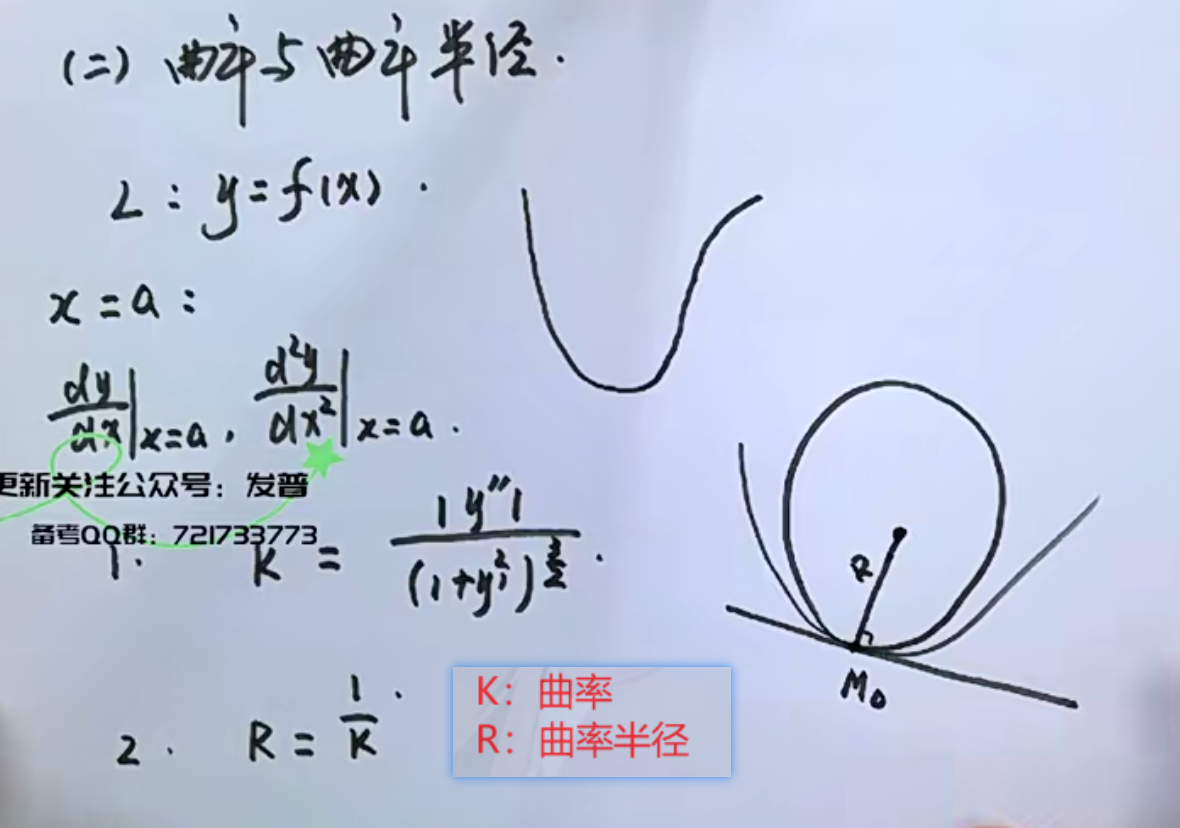 (二) 曲率与曲率半径.
L : y = f(x) .
x = a :
dy/dx|x=a , d²y/dx²|x=a .
更新关注公众号：发普
备考QQ群：721733773
1. K = |y″| / (1+y′²)^(3/2) .
R
M₀
2. R = 1/K .
K：曲率
R：曲率半径